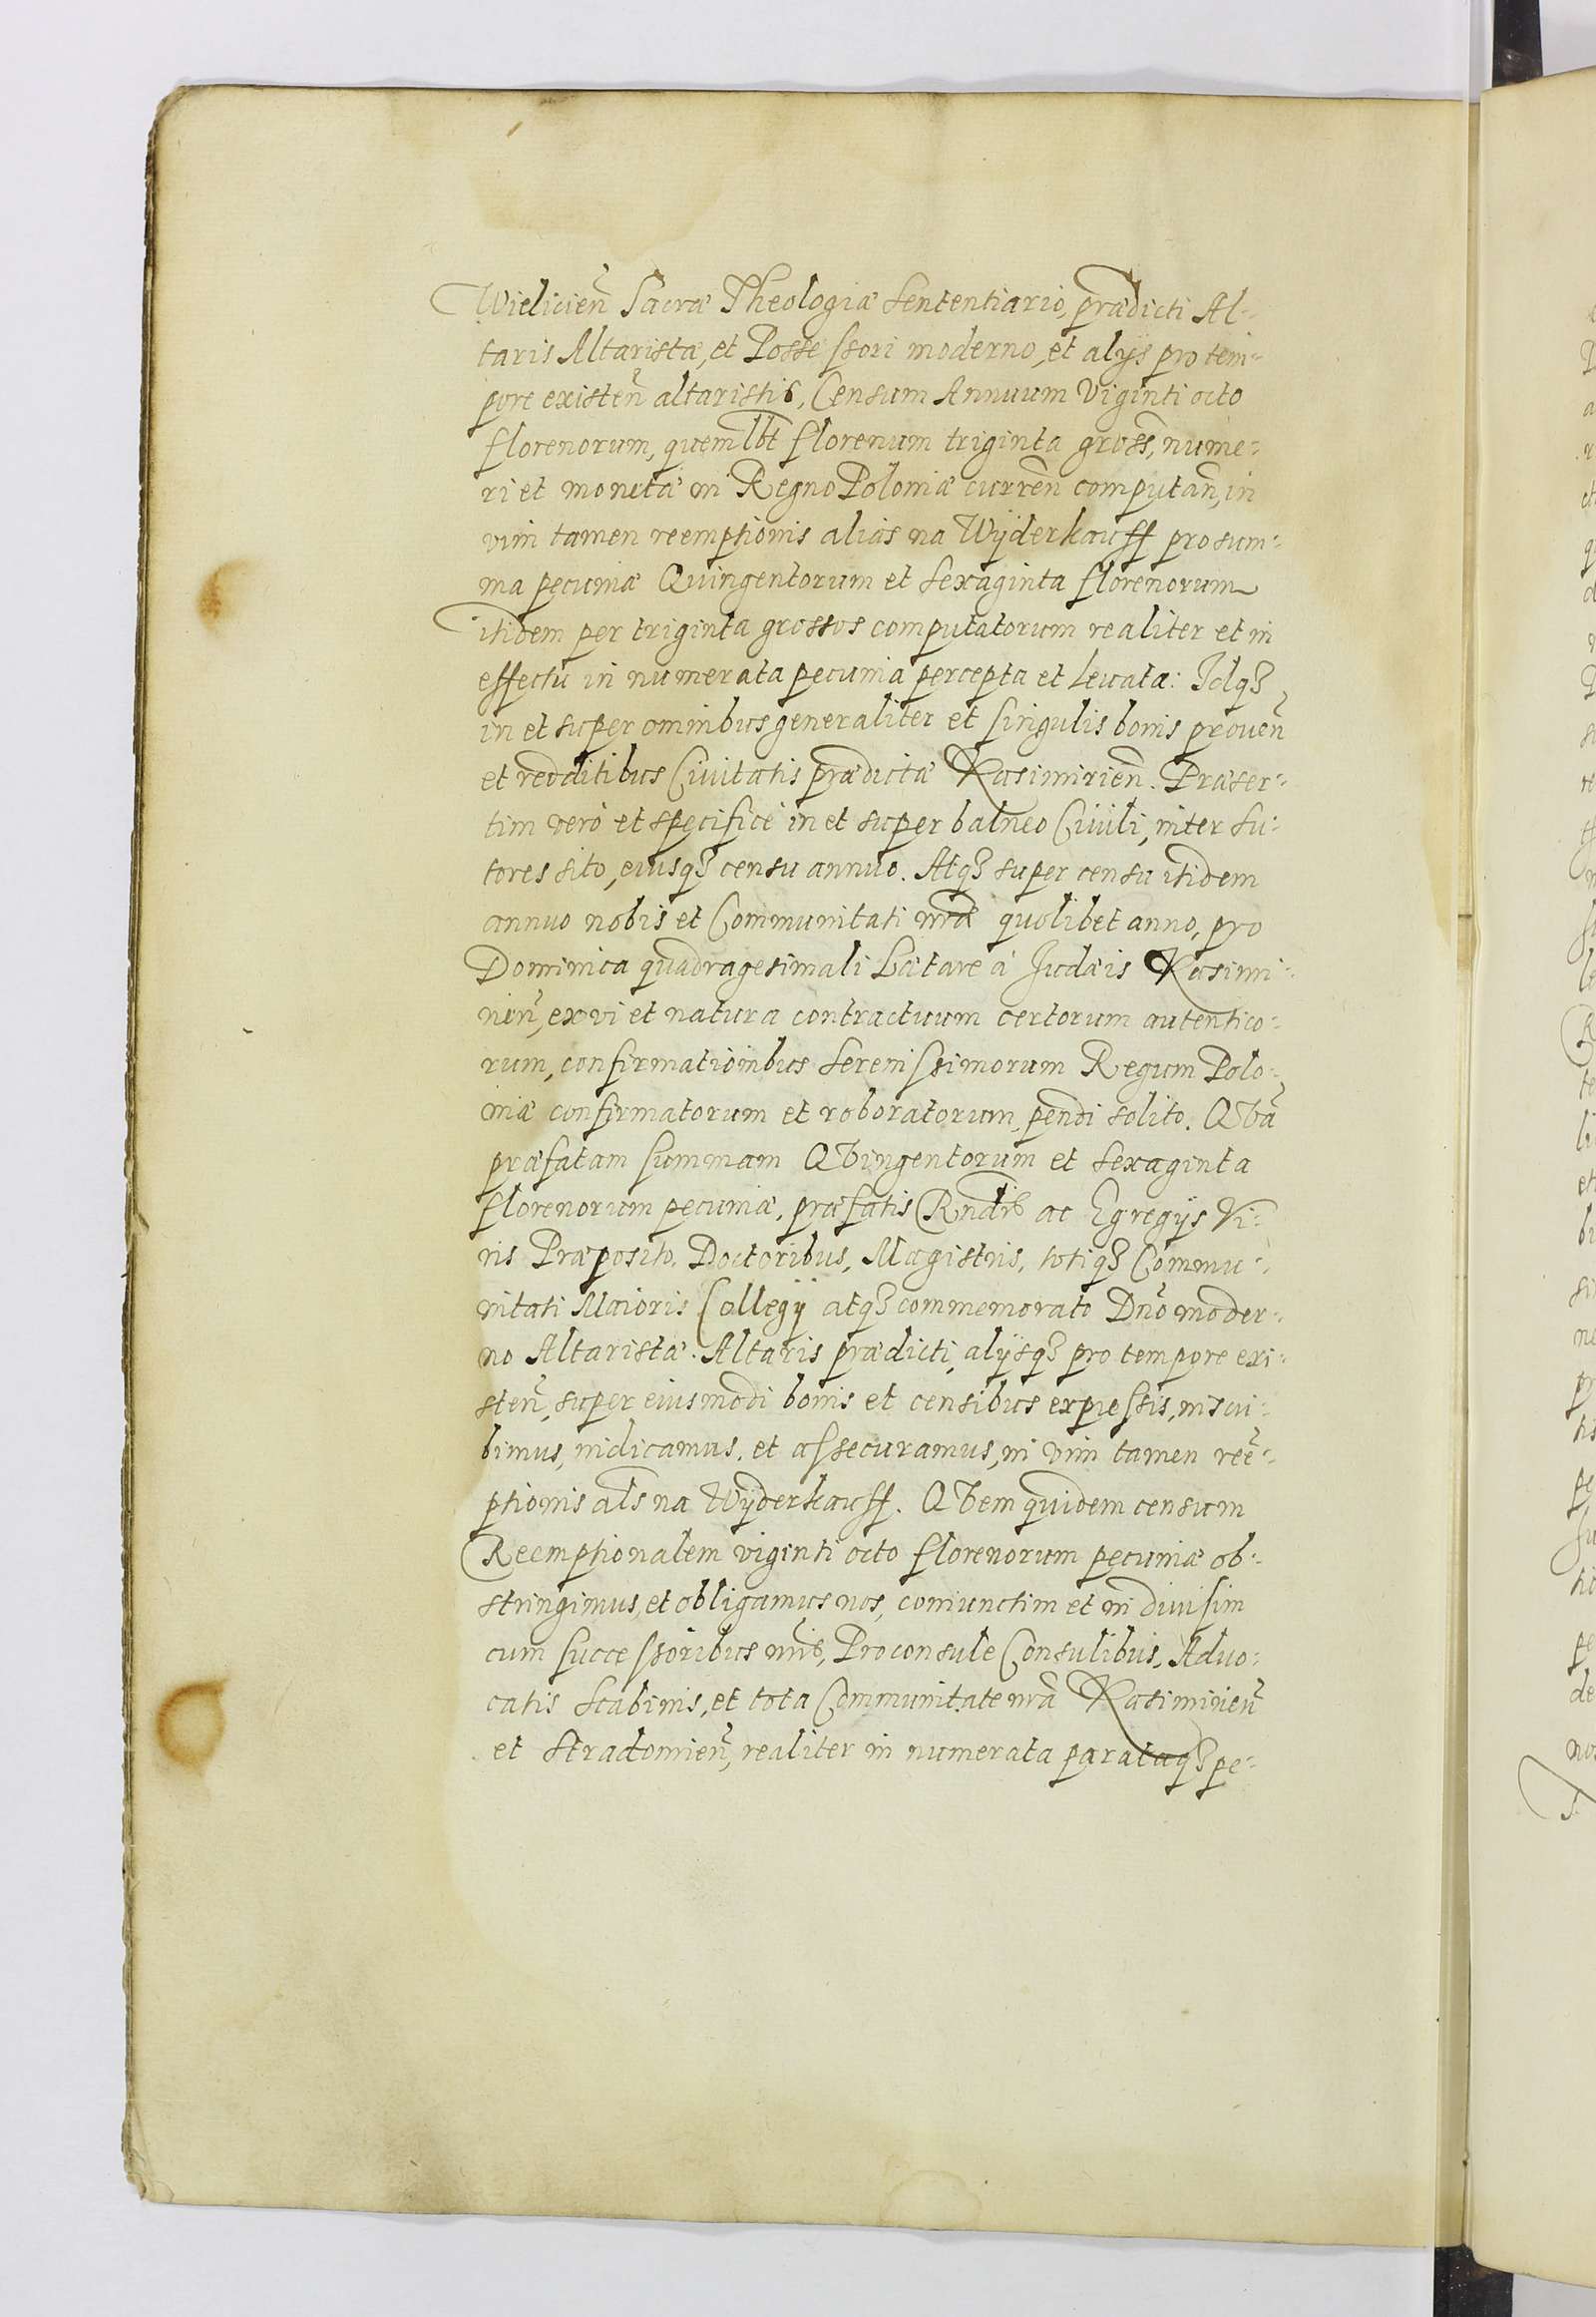 Wielicien̄ Sacræ Theologiæ Sententiario, prædicti Al-
taris Altaristæ, et Possessori moderno, et alijs pro tem-
pore existen̄ altaristis, Censum Annuum Viginti octo
florenorum, quemlb̄t florenum triginta gross, nume-
ri et monetæ in Regno Poloniæ curren̄ computan̄, in
vim tamen reemptionis alias na Wÿderkauff pro sum-
ma pecuniæ Quingentorum et Sexaginta florenorum
itidem per triginta grossos computatorum realiter et in
effectu in numerata pecunia percepta et levata: Idq3
in et super omnibus generaliter et singulis bonis proven̄
et redditibus Civitatis prædictæ Kasimirien̄. Præser-
tim verò et specificè in et super balneo Civili, inter su-
tores sito, eiusq3 censu annuo. Atq3 super censu itidem
annuo nobis et Communitati nr̄æ quolibet anno, pro
Dominica quadragesimali Lætare à Judæis Kasimi-
rien̄, ex vi et natura contractuum certorum autentico-
rum, confirmationibus Serenissimorum Regum Polo-
niæ confirmatorum et roboratorum, pendi solito. QVā
præfatam summam QVingentorum et Sexaginta
florenorum pecuniæ, præfatis Rndis ac Egregijs Vi-
ris Præposito, Doctoribus, Magistris, totiq3 Commu-
nitati Maioris Collegij atq3 commemorato Dn̄o moder-
no Altaristæ. Altaris prædicti, alijsq3 pro tempore exi-
sten̄, super eiusmodi bonis et censibus expressis, inscri-
bimus, indicamus, et assecuramus, in vim tamen reē-
ptionis al̄s na Wÿderkauff. QVem quidem censum
Reemptionalem viginti octo florenorum pecuniæ ob-
stringimus, et obligamus nos, coniunctim et in divisim
cum successoribus nr̄is, Proconsule Consulibus, Advo-
catis Scabinis, et tota Communitate nr̄a Kasimirien̄
et Stradomien̄, realiter in numerata parataq3 pe-